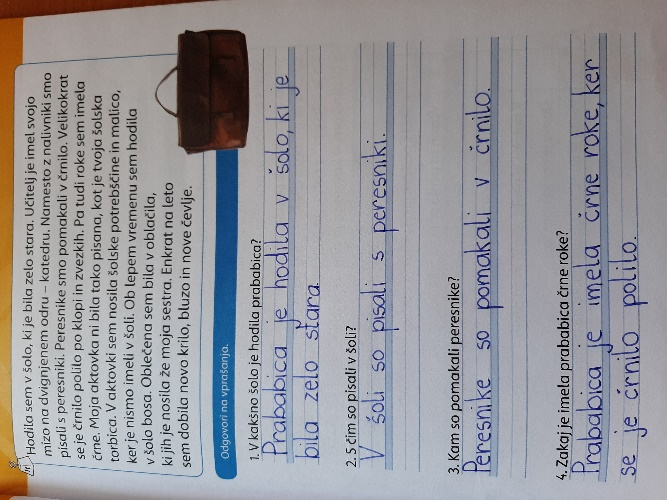 Hodila sem v šolo, ki je bila zelo stara. Učitelj je imel svojo
mizo na dvignjenem odru – katedru. Namesto z nalivniki smo
pisali s peresniki. Peresnike smo pomakali v črnilo. Velikokrat
se je črnilo polilo po klopi in zvezkih. Pa tudi roke sem imela
črne. Moja aktovka ni bila tako pisana, kot je tvoja šolska
torbica. V aktovki sem nosila šolske potrebščine in malico,
ker je nismo imeli v šoli. Ob lepem vremenu sem hodila
v šolo bosa. Oblečena sem bila v oblačila,
ki jih je nosila že moja sestra. Enkrat na leto
sem dobila novo krilo, bluzo in nove čevlje.
Odgovori na vprašanja.
1. V kakšno šolo je hodila prababica?
Prababica je hodila v šolo, ki je
bila zelo stara.
2. S čim so pisali v šoli?
V šoli so pisali s peresniki.
3. Kam so pomakali peresnike?
Peresnike so pomakali v črnilo.
4. Zakaj je imela prababica črne roke?
Prababica je imela črne roke, ker
se je črnilo polilo.